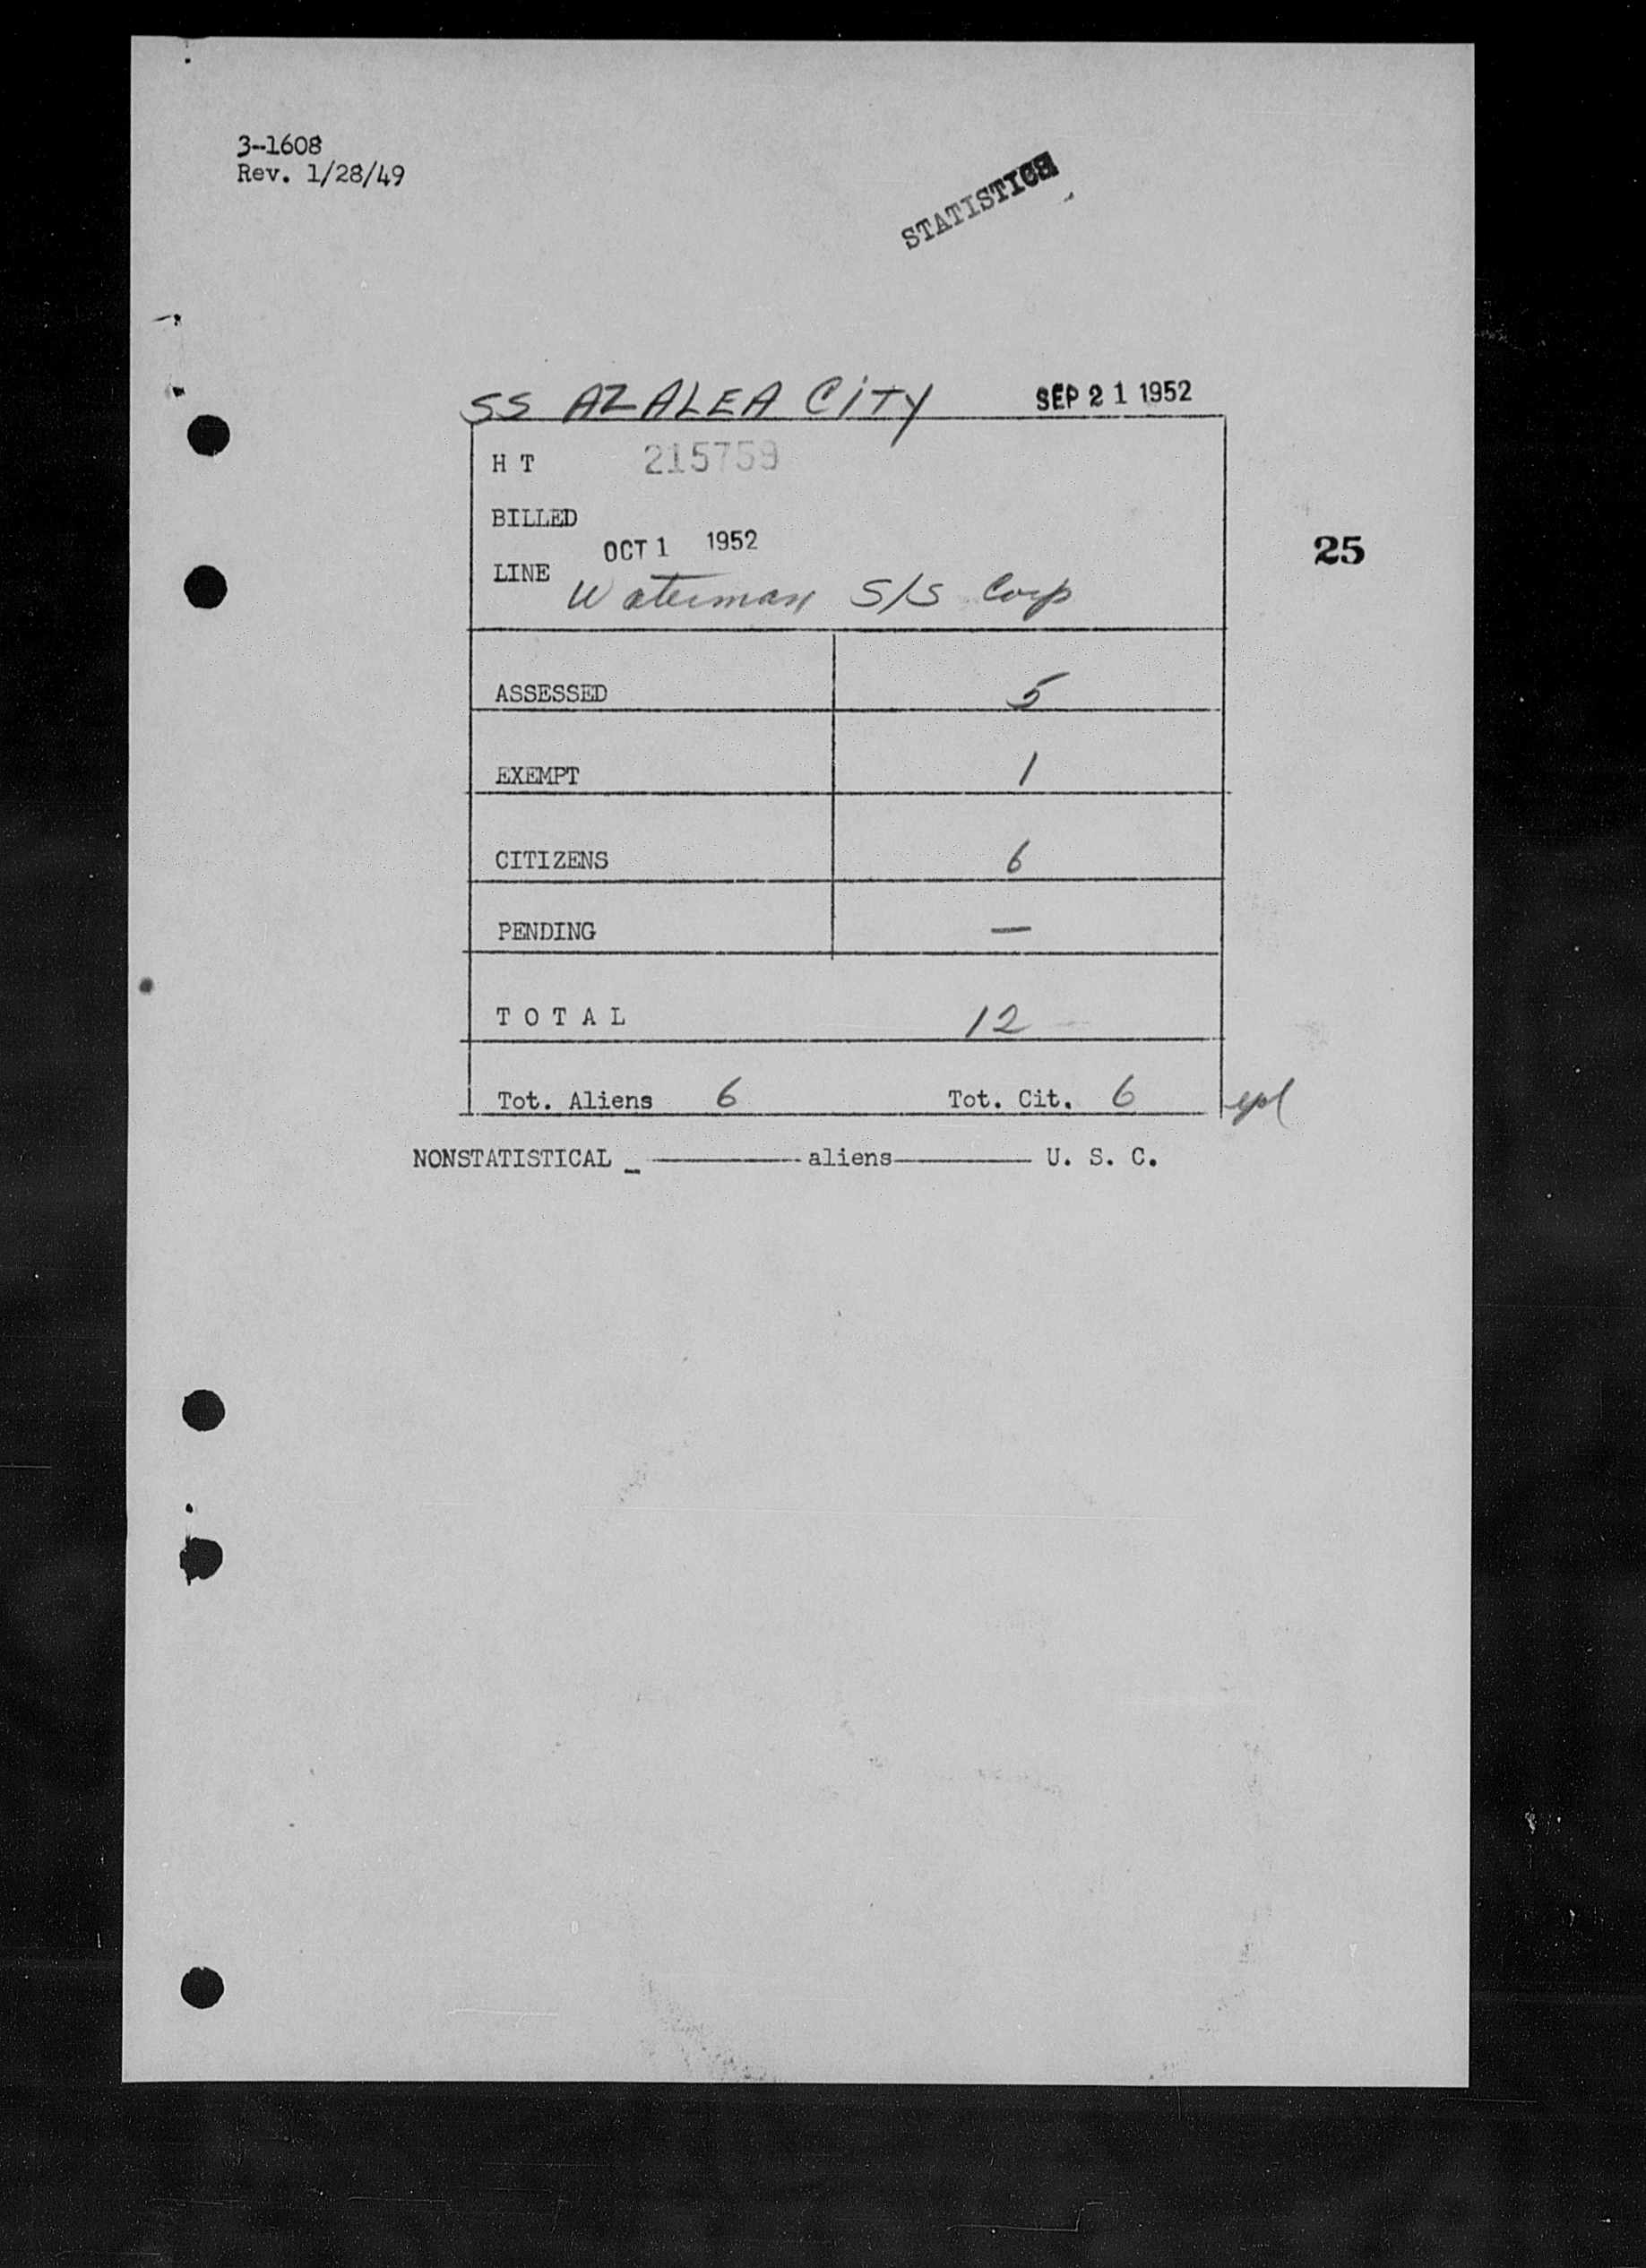 3-1608
Rev. 1/28/49
STATISTICS
SS AZALEA CITY SEP 21 1952
H T 215759
BILLED
OCT 1 1952
LINE Waterman S/S Corp
25
ASSESSED 5
EXEMPT 1
CITIZENS 6
PENDING —
T O T A L 12
Tot. Aliens 6 Tot. Cit. 6
NONSTATISTICAL _ ———— aliens ———— U. S. C.